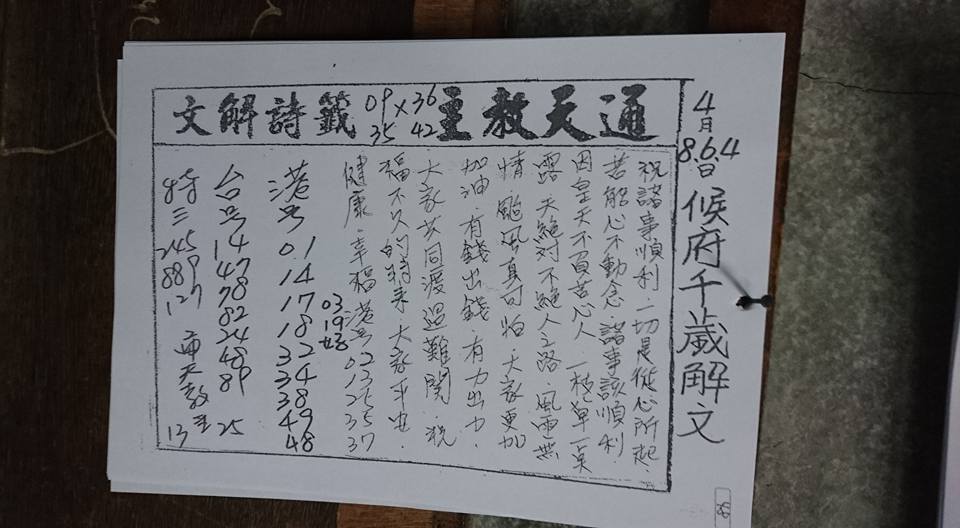 4月8.6.4日 候府千歲解文
通天教主 籤詩解文
09 × 36
35 42
祝諸事順利.一切是從心所起.
若能心不動念.諸事該順利.
因皇天不負苦心人.一枝草一点
露.天絕對不絕人之路.風雨無
情.颱風真可怕.大家更加
加油.有錢出錢.有力出力.
大家共同渡過難関.祝
福不久的將来.大家平安.
健康.幸福.港号
03
19
港号 01 14 17 18 32 34 38 49 48
台号 14 47 78 82 24 48 89 25
特三 245 889 127 通天教主 13